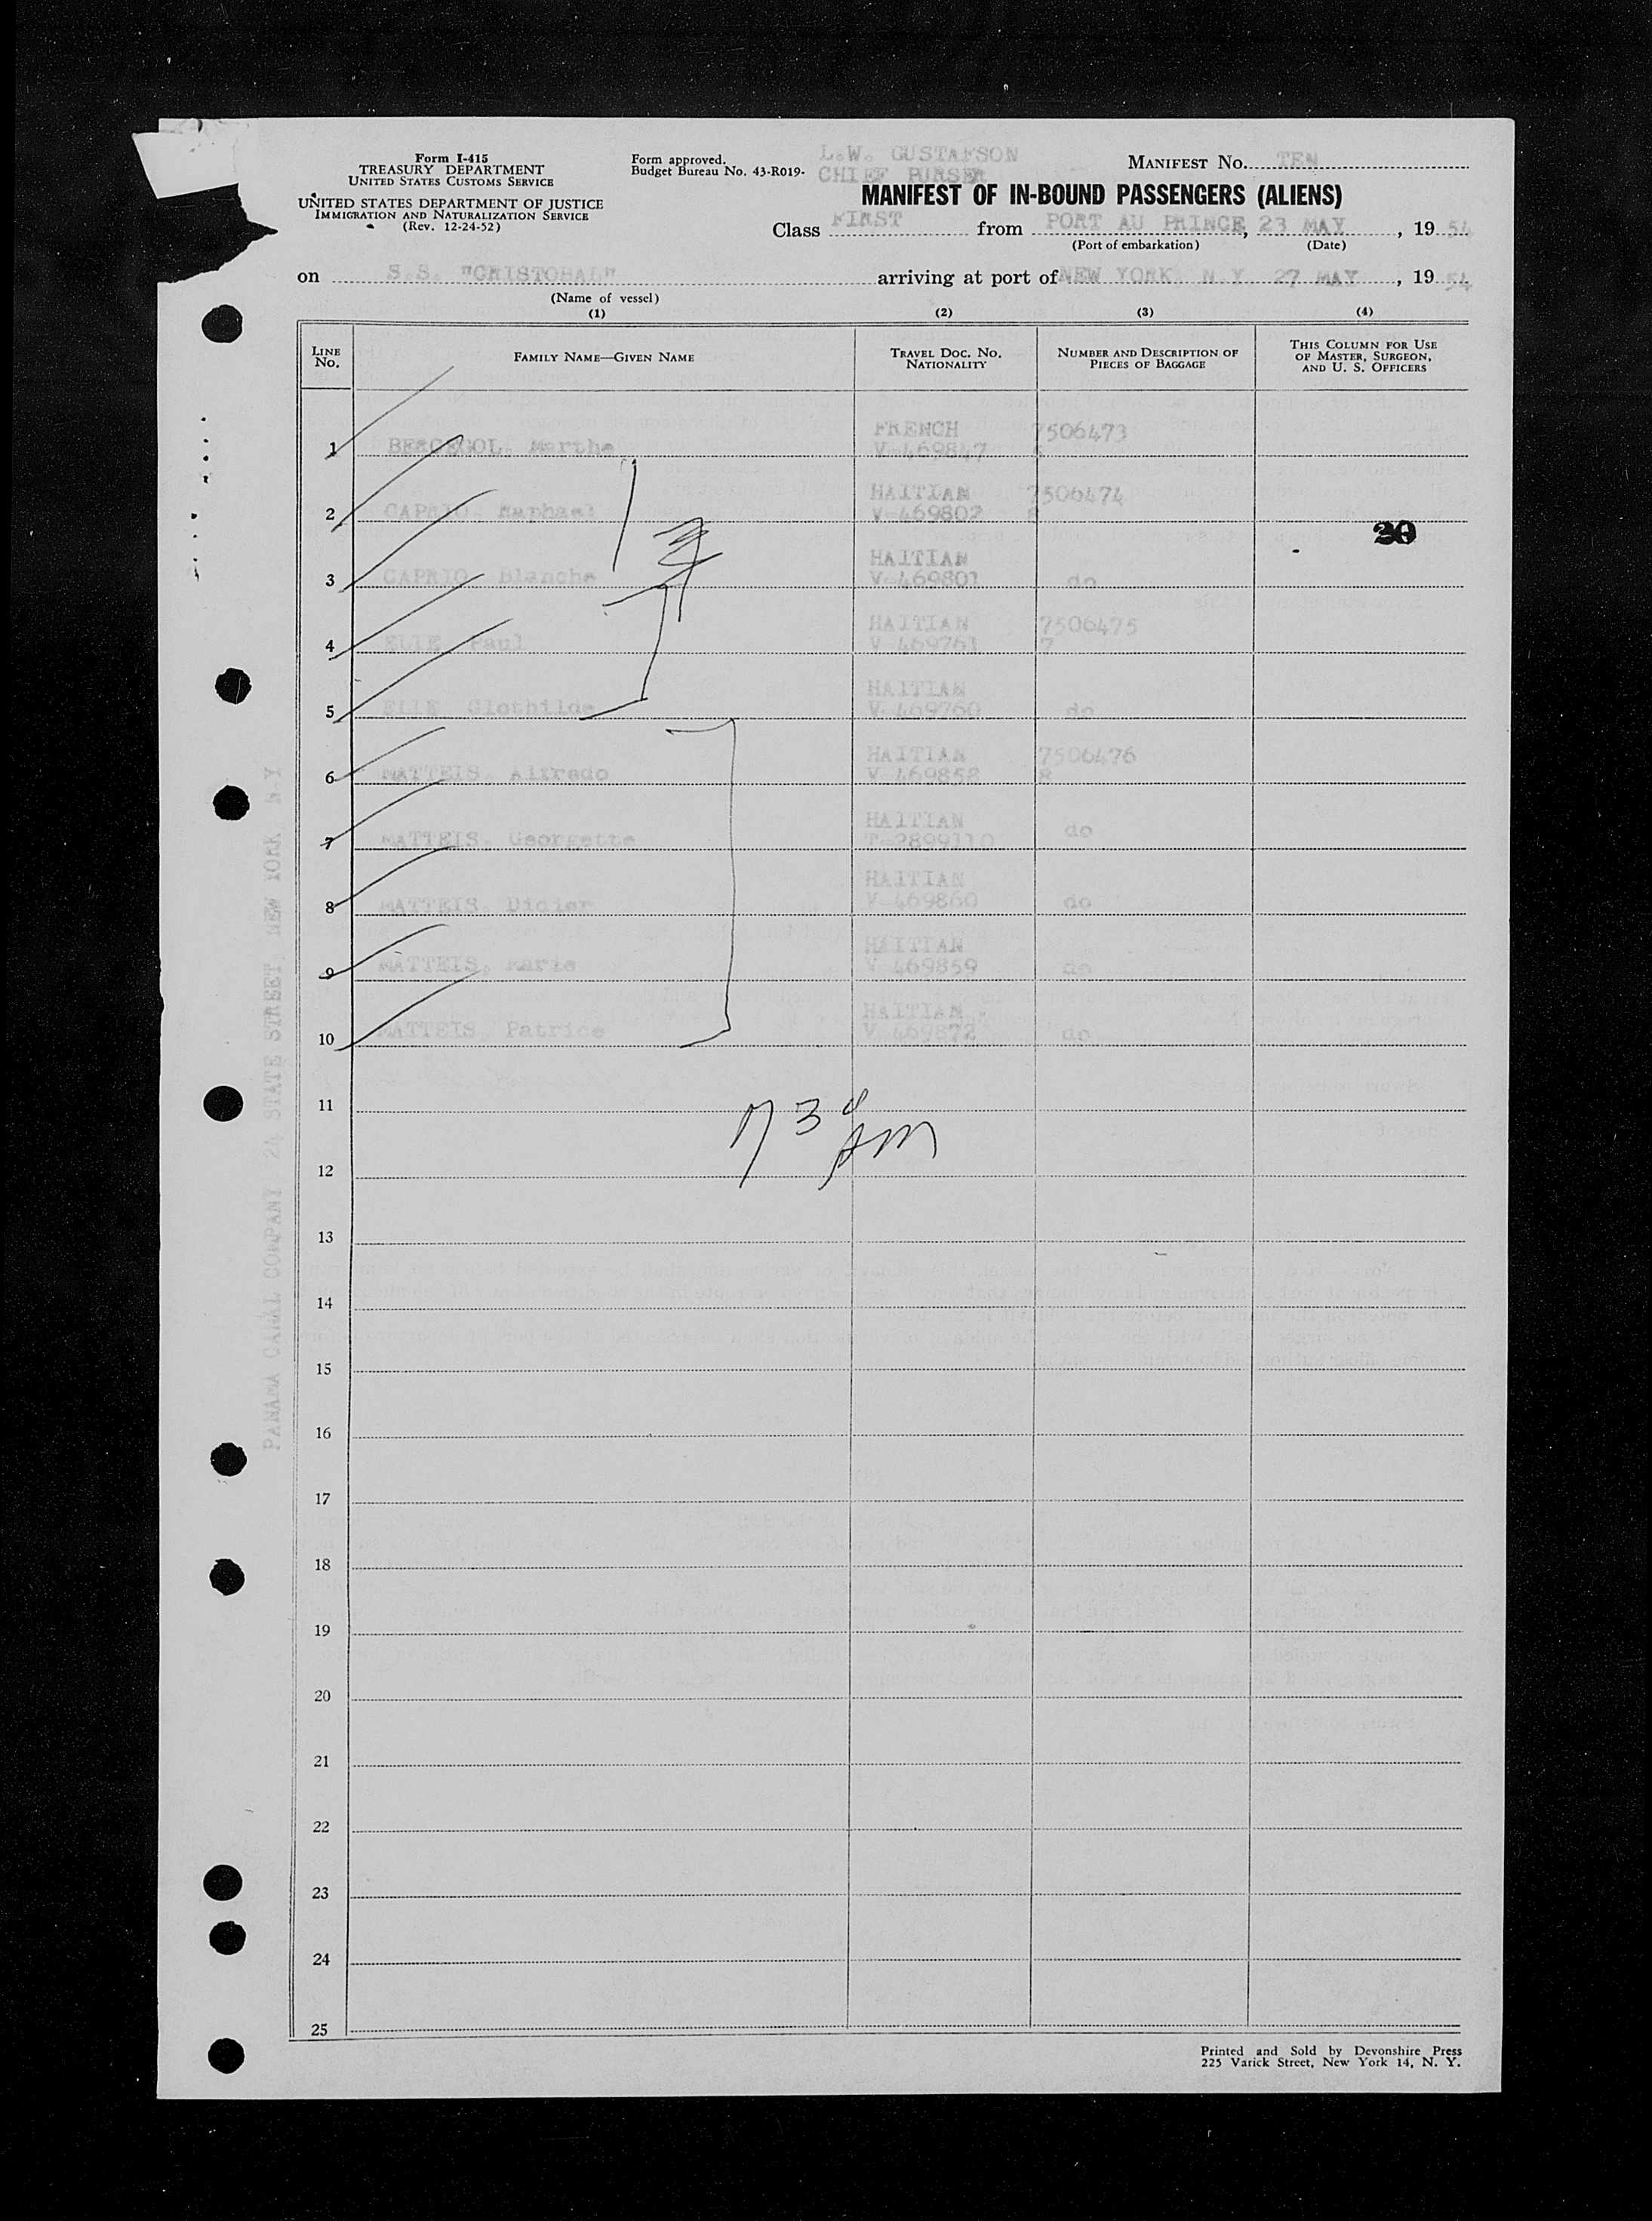 Form I-415
TREASURY DEPARTMENT
UNITED STATES CUSTOMS SERVICE
UNITED STATES DEPARTMENT OF JUSTICE
IMMIGRATION AND NATURALIZATION SERVICE
(Rev. 12-24-52)
Form approved.
Budget Bureau No. 43-R019-
L.W. GUSTAFSON
CHIEF PURSER
MANIFEST NO. TEN
MANIFEST OF IN-BOUND PASSENGERS (ALIENS)
Class FIRST from PORT AU PRINCE, 23 MAY, 19 54
(Port of embarkation) (Date)
on S.S. "CRISTOBAL" arriving at port of NEW YORK, N.Y 27 MAY, 19 54
(Name of vessel)
(1) (2) (3) (4)
LINE NO. FAMILY NAME—GIVEN NAME TRAVEL DOC. NO. NATIONALITY NUMBER AND DESCRIPTION OF PIECES OF BAGGAGE THIS COLUMN FOR USE OF MASTER, SURGEON, AND U. S. OFFICERS
FRENCH 7506473
1 BERCEGOL, Marthe V-469847
HAITIAN 7506474
2 CAPRIO, Raphael V-469802
30
HAITIAN
3 CAPRIO, Blanche V-469801 do
HAITIAN 7506475
4 ELIE Paul V-469761 7
HAITIAN
5 ELIE Clothilde V-469760 do
HAITIAN 7506476
6 MATTEIS, Alfredo V-469858 8
HAITIAN
7 MATTEIS, Georgette T-2899110 do
HAITIAN
8 MATTEIS, Didier V-469860 do
HAITIAN
9 MATTEIS, Marie V 469859 do
HAITIAN
10 MATTEIS, Patrice V-469872 do
11
7 30 AM
12
13
14
15
16
17
18
19
20
21
22
23
24
25
PANAMA CANAL COMPANY 24 STATE STREET, NEW YORK N-Y
Printed and Sold by Devonshire Press
225 Varick Street, New York 14, N. Y.